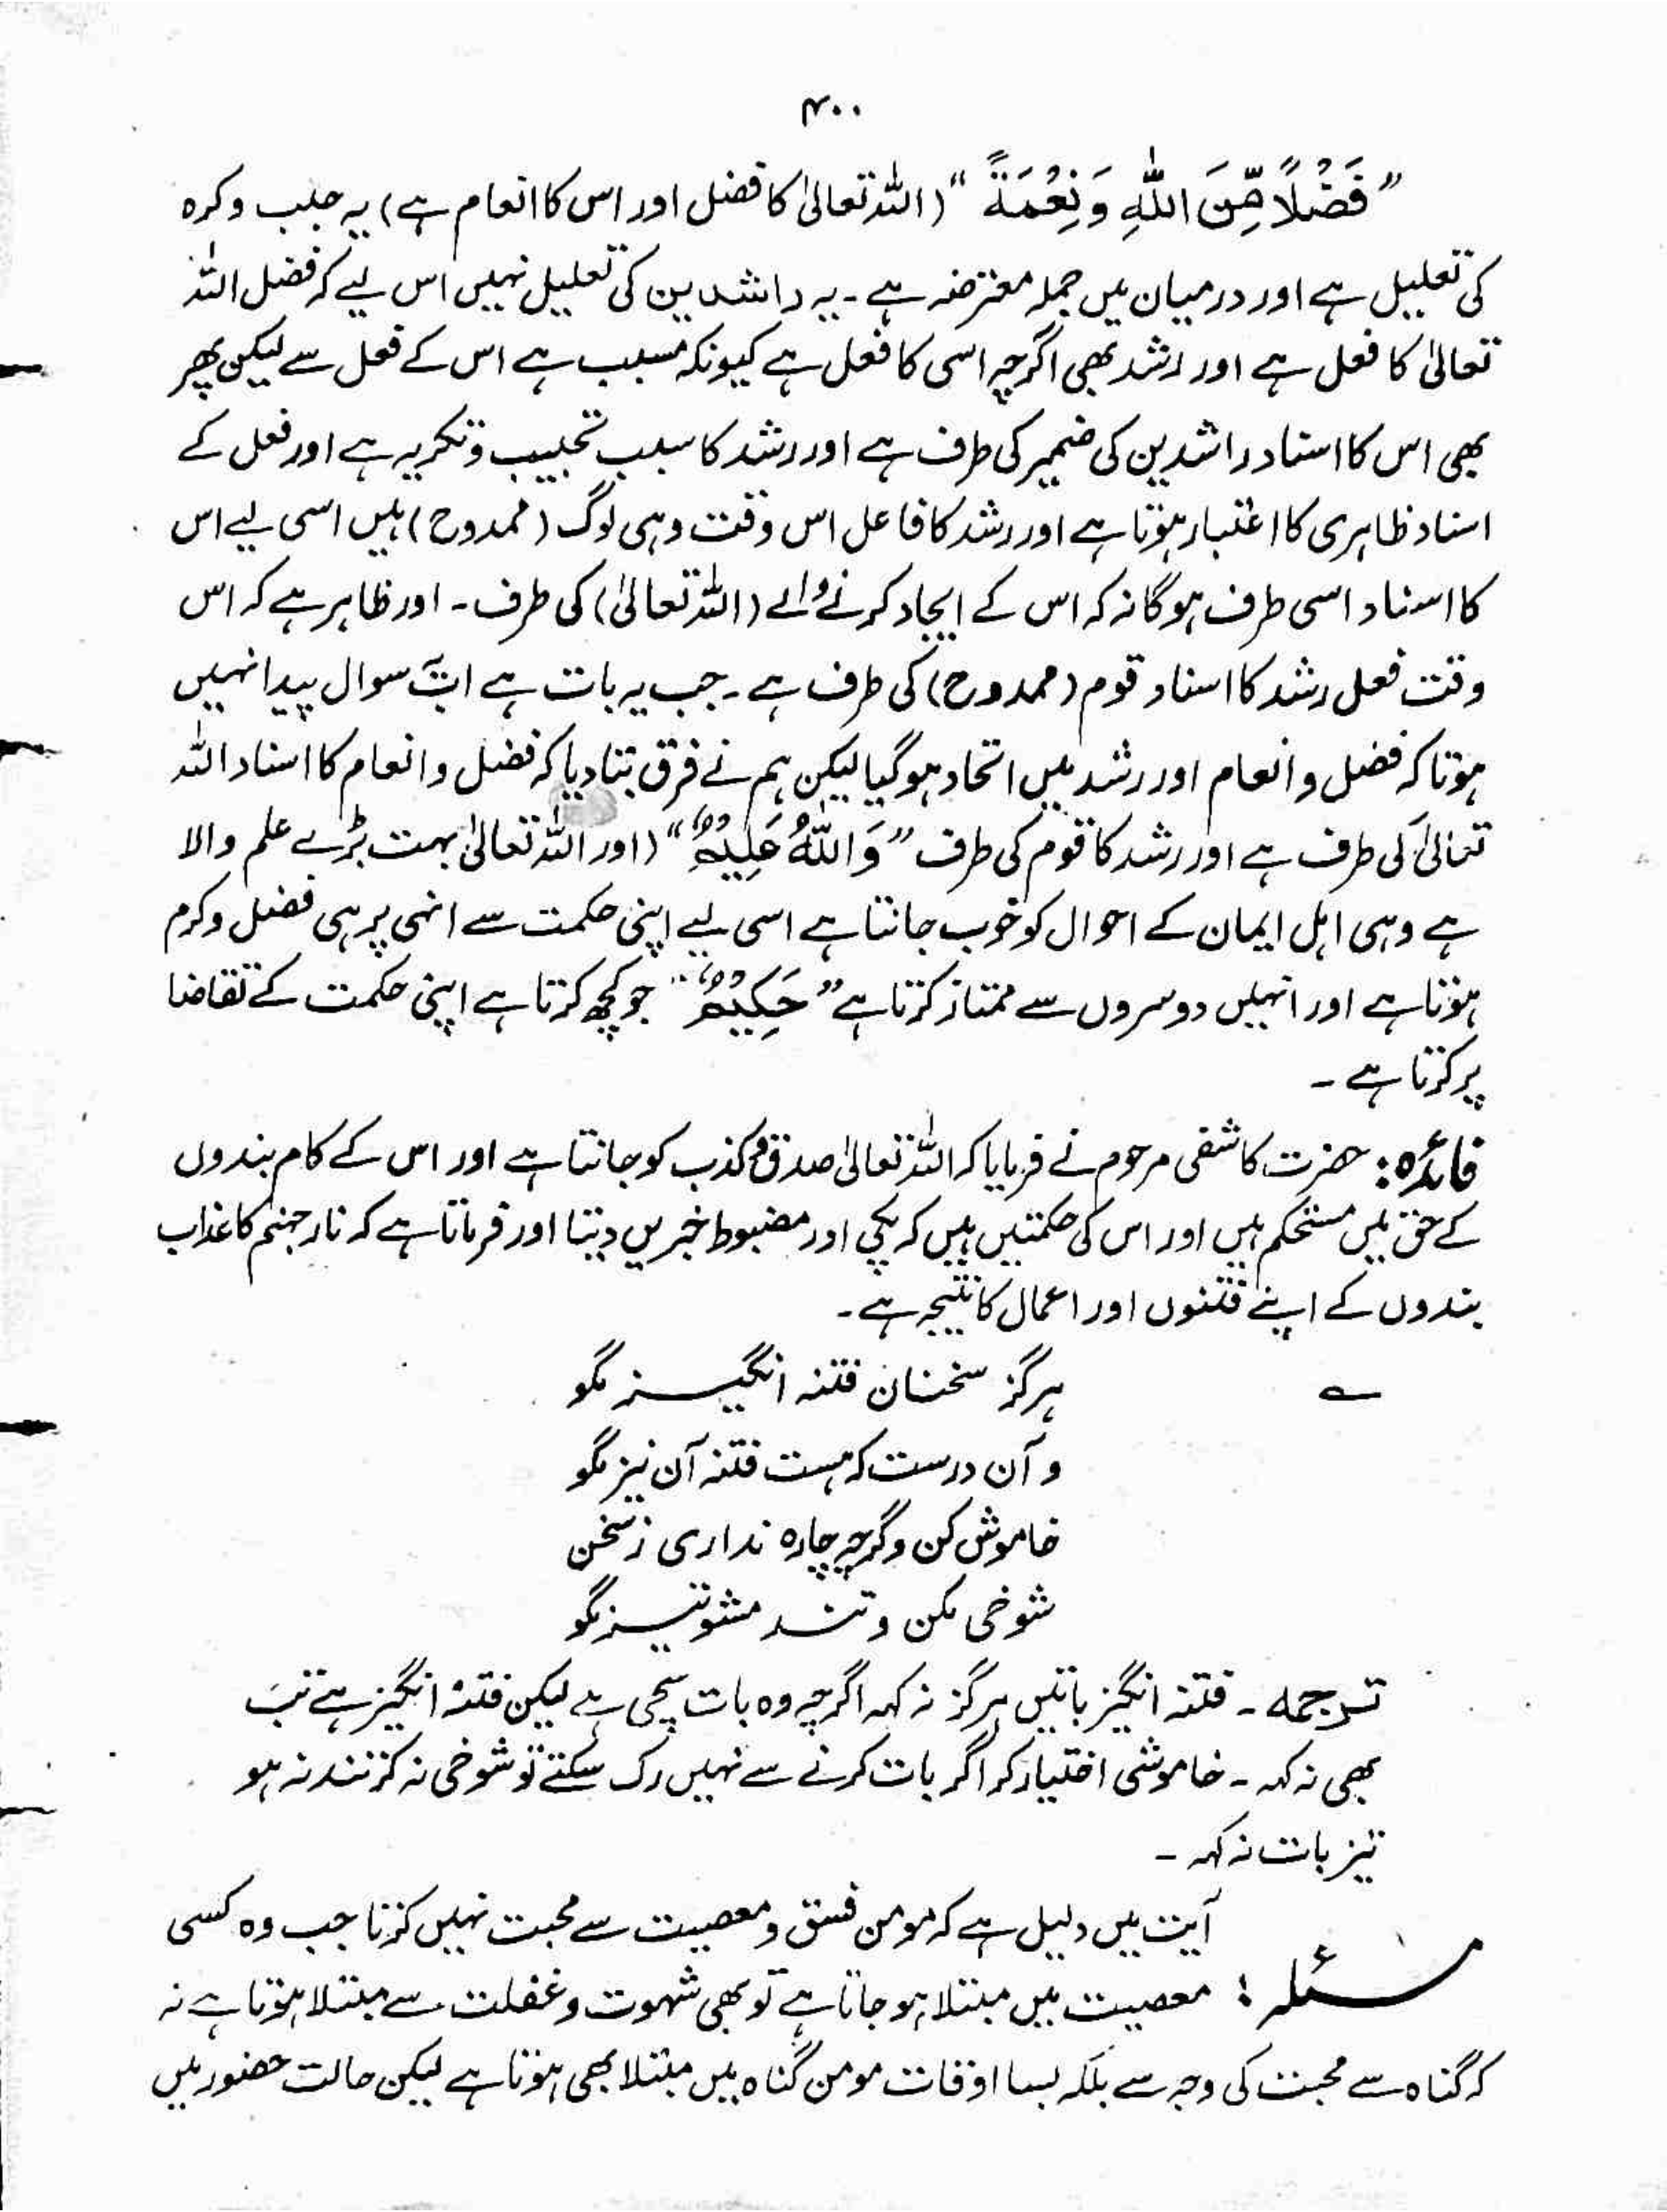 ۴۰۰
”فَضْلًا مِّنَ اللّٰهِ وَنِعْمَةً“ (اللہ تعالیٰ کا فضل اور اس کا انعام ہے) یہ حبب وکرہ
کی تعلیل ہے اور درمیان میں جملہ معترضہ ہے۔ یہ راشدین کی تعلیل نہیں اس لیے کہ فضل اللہ
تعالیٰ کا فعل ہے اور رشد بھی اگرچہ اسی کا فعل ہے کیونکہ مسبب ہے اس کے فعل سے لیکن پھر
بھی اس کا اسناد راشدین کی ضمیر کی طرف ہے اور رشد کا سبب تحبیب و تکریہ ہے اور فعل کے
اسناد ظاہری کا اعتبار ہوتا ہے اور رشد کا فاعل اس وقت وہی لوگ (ممدوح) ہیں اسی لیے اس
کا اسناد اسی طرف ہوگا نہ کہ اس کے ایجاد کرنے والے (اللہ تعالیٰ) کی طرف۔ اور ظاہر ہے کہ اس
وقت فعل رشد کا اسناد قوم (ممدوح) کی طرف ہے۔ جب یہ بات ہے اب سوال پیدا نہیں
ہوتا کہ فضل و انعام اور رشد میں اتحاد ہوگیا لیکن ہم نے فرق بتا دیا کہ فضل و انعام کا اسناد اللہ
تعالیٰ کی طرف ہے اور رشد کا قوم کی طرف ”وَاللّٰهُ عَلِيْمٌ“ (اور اللہ تعالیٰ بہت بڑے علم والا
ہے وہی اہل ایمان کے احوال کو خوب جانتا ہے اسی لیے اپنی حکمت سے انہی پر ہی فضل و کرم
ہوتا ہے اور انہیں دوسروں سے ممتاز کرتا ہے ”حَكِيْمٌ“ جو کچھ کرتا ہے اپنی حکمت کے تقاضا
پر کرتا ہے۔
فائدہ: حضرت کاشفی مرحوم نے فرمایا کہ اللہ تعالیٰ صدق و کذب کو جانتا ہے اور اس کے کام بندوں
کے حق میں مستحکم ہیں اور اس کی حکمتیں ہیں کہ پکی اور مضبوط خبریں دیتا اور فرماتا ہے کہ نار جہنم کا عذاب
بندوں کے اپنے فتنوں اور اعمال کا نتیجہ ہے۔
؎ ہرگز سخنان فتنہ انگیز مگو
و آن درست کہ ہست فتنہ آن نیز مگو
خاموش کن وگرچہ چارہ نداری ز سخن
شوخی مکن و تند مشو تیز مگو
ترجمہ۔ فتنہ انگیز باتیں ہرگز نہ کہہ اگرچہ وہ بات سچی ہے لیکن فتنہ انگیز ہے تب
بھی نہ کہہ۔ خاموشی اختیار کر اگر بات کرنے سے نہیں رک سکتے تو شوخی نہ کر تند نہ ہو
تیز بات نہ کہہ۔
آیت میں دلیل ہے کہ مومن فسق و معصیت سے محبت نہیں کرتا جب وہ کسی
مسئلہ: معصیت میں مبتلا ہو جاتا ہے تو بھی شہوت و غفلت سے مبتلا ہوتا ہے نہ
کہ گناہ سے محبت کی وجہ سے بلکہ بسا اوقات مومن گناہ میں مبتلا بھی ہوتا ہے لیکن حالت حضور میں